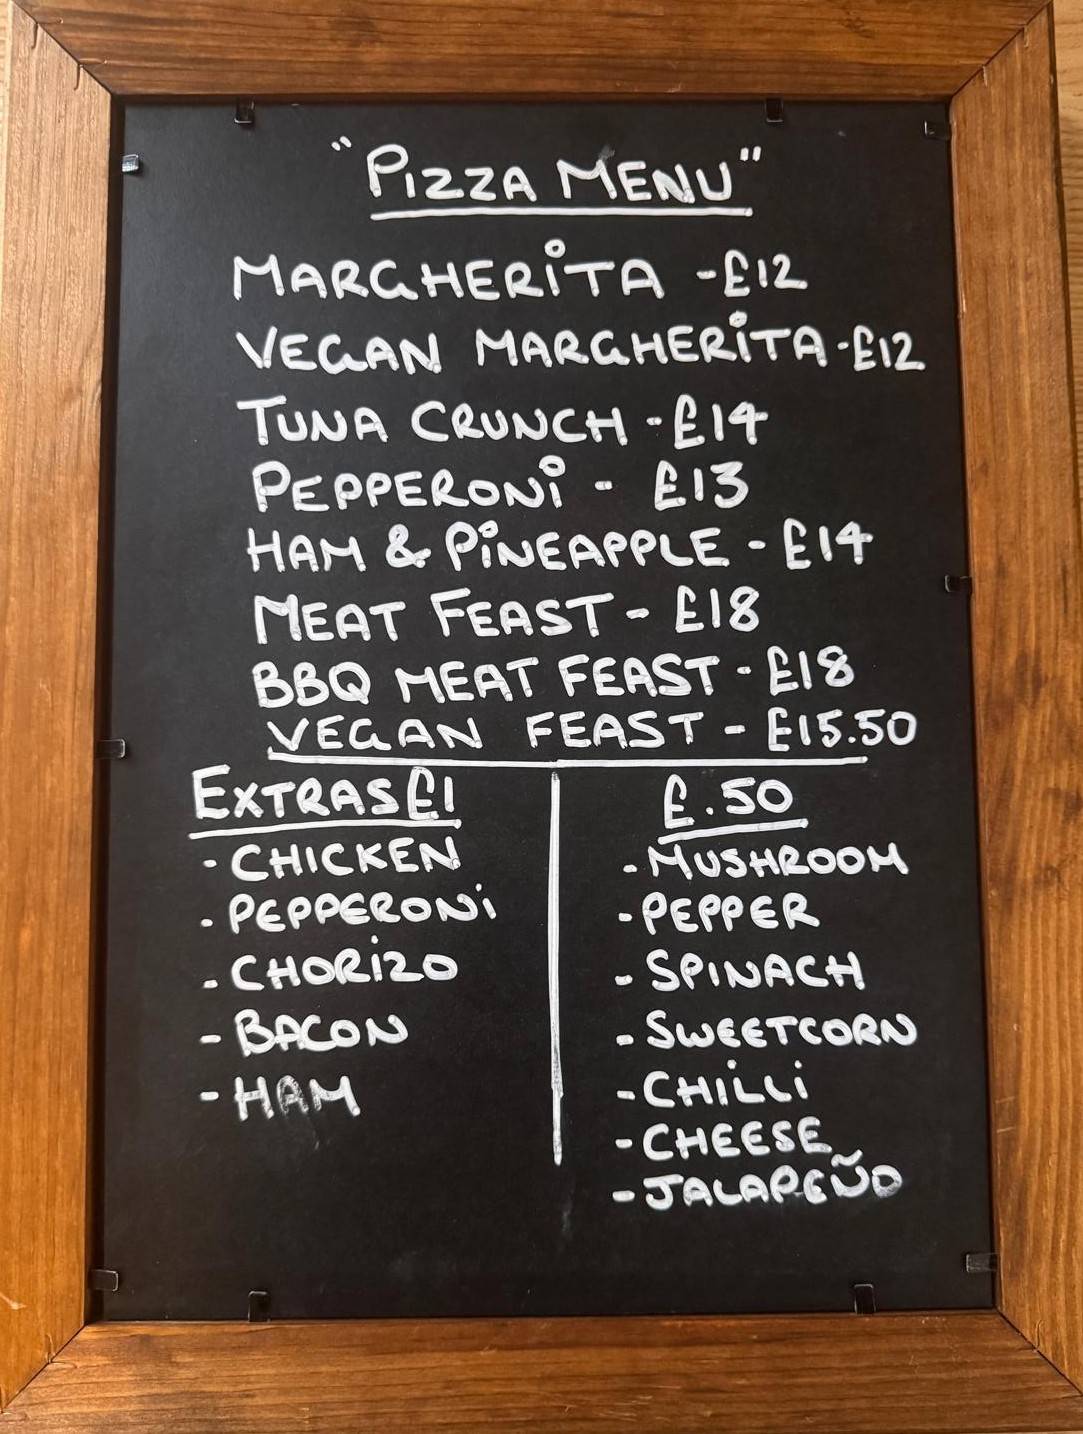 "PIZZA MENU"
MARGHERITA - £12
VEGAN MARGHERITA - £12
TUNA CRUNCH - £14
PEPPERONI - £13
HAM & PINEAPPLE - £14
MEAT FEAST - £18
BBQ MEAT FEAST - £18
VEGAN FEAST - £15.50
EXTRAS £1
- CHICKEN
- PEPPERONI
- CHORIZO
- BACON
- HAM
£.50
- MUSHROOM
- PEPPER
- SPINACH
- SWEETCORN
- CHILLI
- CHEESE
- JALAPEÑO